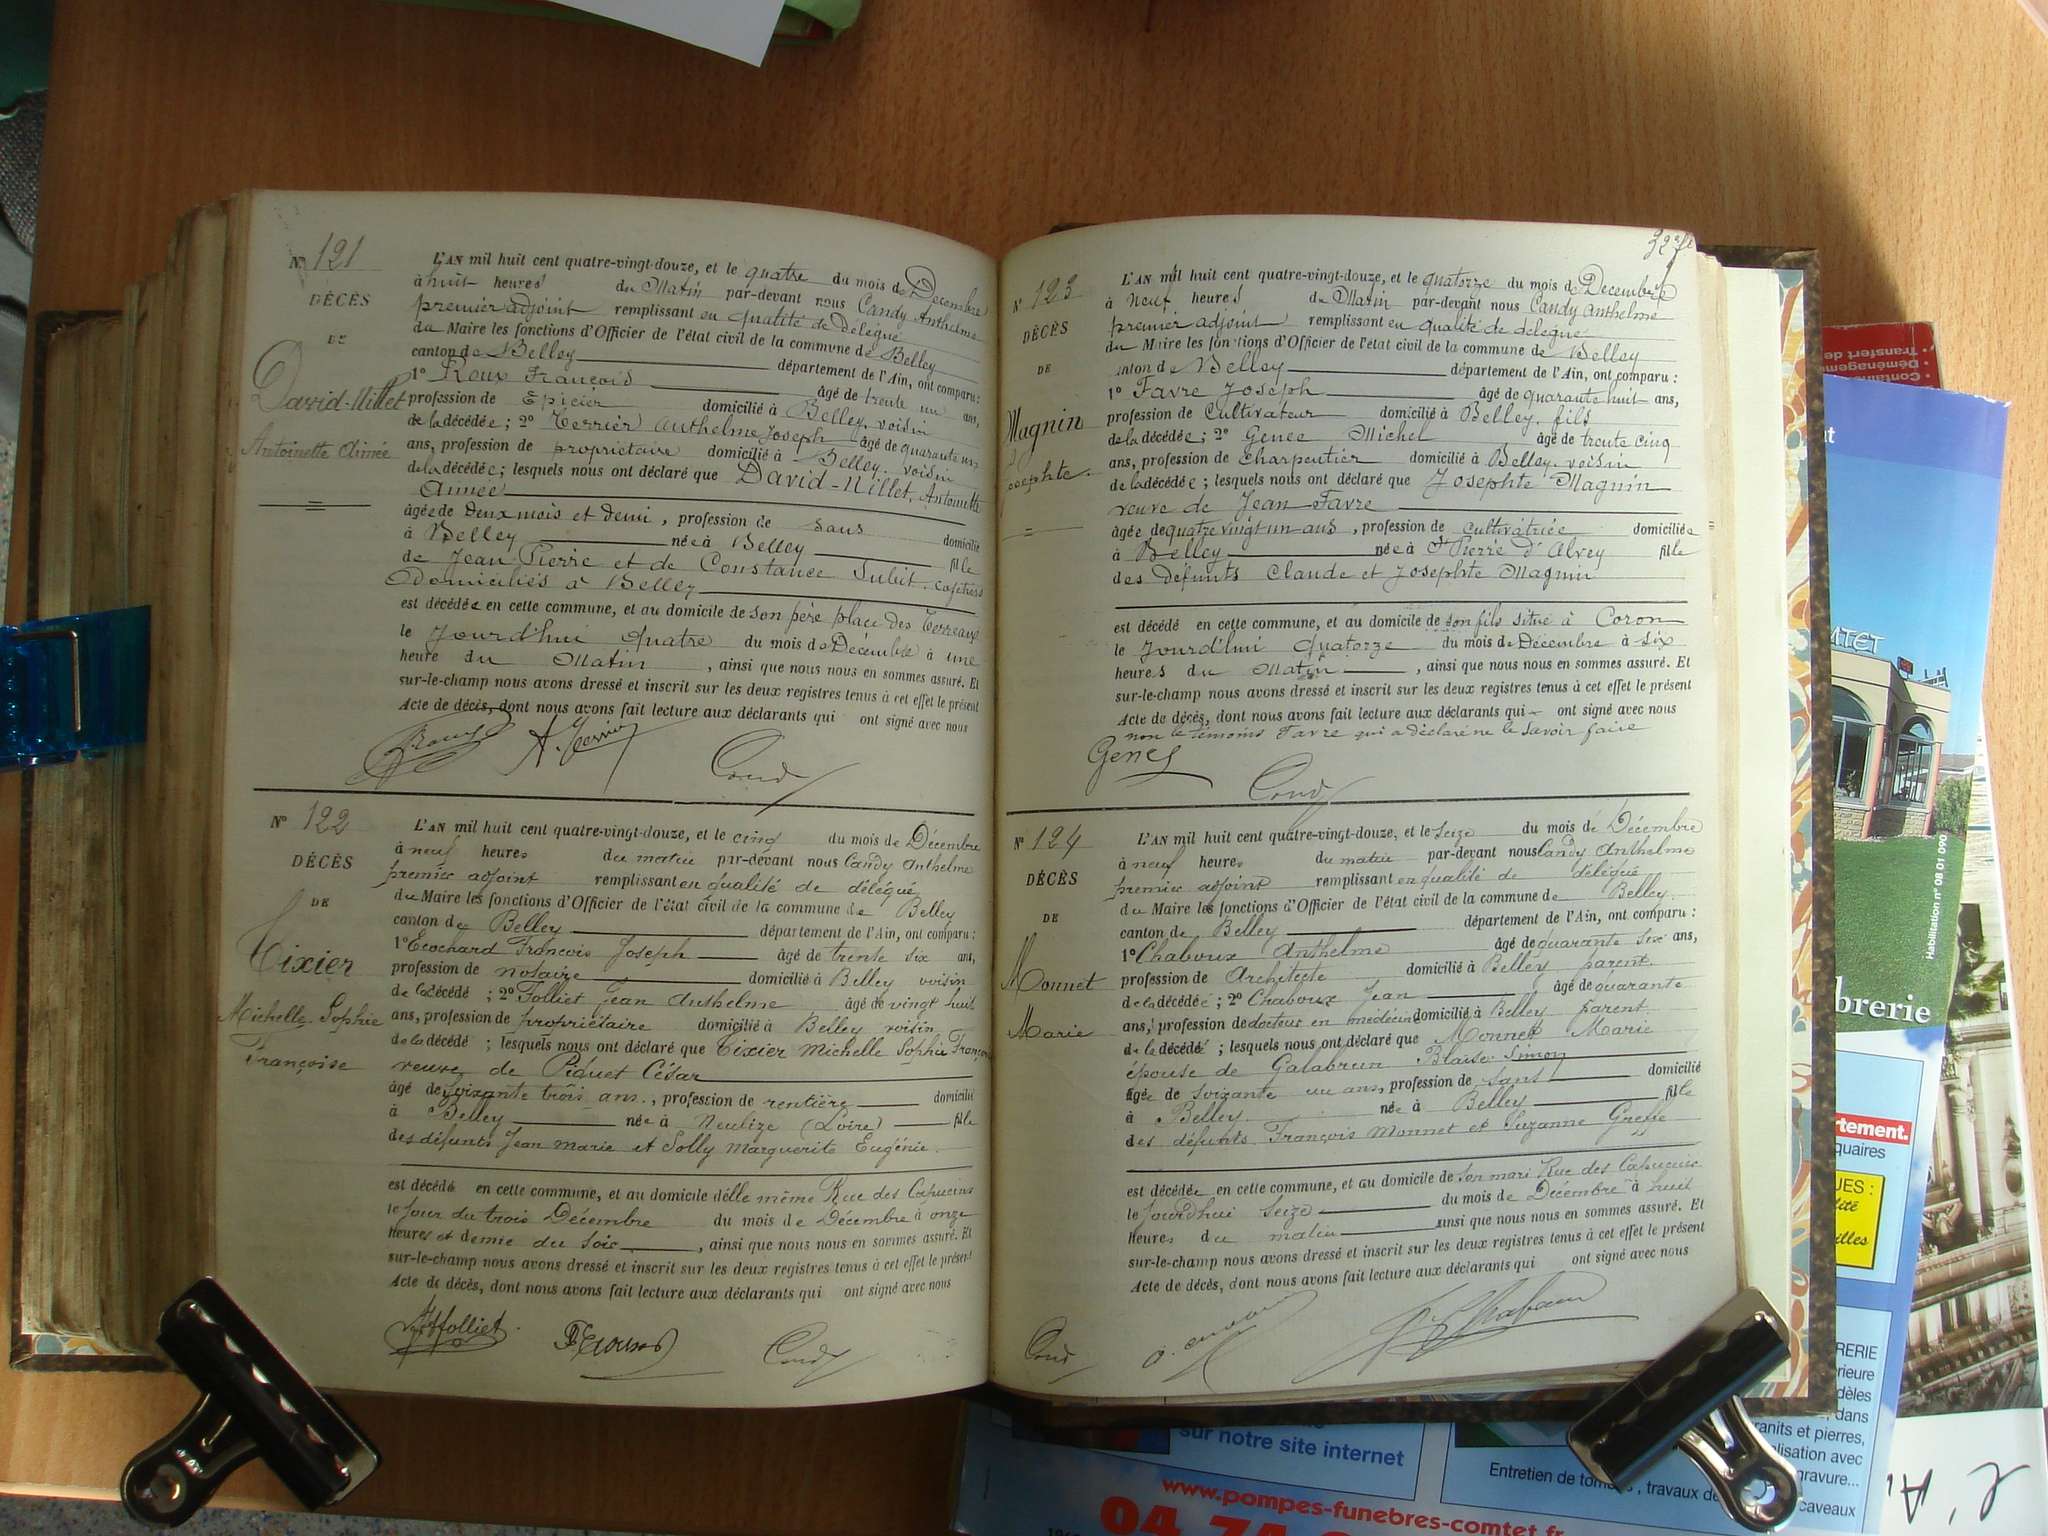 N° 121
DÉCÈS
DE
David-Nillet
Antoinette Aimée
L'AN mil huit cent quatre-vingt-douze, et le quatre du mois de Decembre
à huit heures du Matin par-devant nous Candy Anthelme
premier adjoint remplissant en qualité de Délégué
du Maire les fonctions d'Officier de l'état civil de la commune de Belley
canton de Belley département de l'Ain, ont comparu :
1° Roux François âgé de trente un ans,
profession de Epicier domicilié à Belley, voisin
de la décédée ; 2° Terrier Anthelme Joseph âgé de quarante un
ans, profession de propriétaire domicilié à Belley. voisin
de la décédée ; lesquels nous ont déclaré que David-Nillet, Antoinette
Aimée
âgée de deux mois et demi, profession de sans domicilié
à Belley née à Belley fille
de Jean Pierre et de Constance Subit cafetiers
Domiciliés à Belley
est décédée en cette commune, et au domicile de son père place des Terreaux
le jourd'hui quatre du mois de Décembre à une
heure du Matin, ainsi que nous nous en sommes assuré. Et
sur-le-champ nous avons dressé et inscrit sur les deux registres tenus à cet effet le présent
Acte de décès, dont nous avons fait lecture aux déclarants qui ont signé avec nous
A. Terrier
N° 122
DÉCÈS
DE
Tixier
Michelle Sophie
Françoise
L'AN mil huit cent quatre-vingt-douze, et le cinq du mois de Décembre
à neuf heures du matin par-devant nous Candy Anthelme
premier adjoint remplissant en qualité de délégué
du Maire les fonctions d'Officier de l'état civil de la commune de Belley
canton de Belley département de l'Ain, ont comparu :
1° Ecochard François Joseph âgé de trente six ans,
profession de notaire domicilié à Belley voisin
de la décédé ; 2° Folliet Jean Anthelme âgé de vingt huit
ans, profession de propriétaire domicilié à Belley voisin
de la décédé ; lesquels nous ont déclaré que Tixier Michelle Sophie Françoise
veuve de Piquet César
âgé de soixante trois ans., profession de rentière domicilié
à Belley née à Neulize (Loire) fille
des défunts Jean Marie et Solly Marguerite Eugénie.
est décédé en cette commune, et au domicile d'elle même Rue des Capucins
le jour du trois Décembre du mois de Décembre à onze
heures et demie du soir, ainsi que nous nous en sommes assuré. Et
sur-le-champ nous avons dressé et inscrit sur les deux registres tenus à cet effet le présent
Acte de décès, dont nous avons fait lecture aux déclarants qui ont signé avec nous
Folliet
N° 123
DÉCÈS
DE
Magnin
Josephte
L'AN mil huit cent quatre-vingt-douze, et le quatorze du mois de Decembre
à Neuf heures du Matin par-devant nous Candy Anthelme
premier adjoint remplissant en qualité de délégué
du Maire les fonctions d'Officier de l'état civil de la commune de Belley
canton de Belley département de l'Ain, ont comparu :
1° Favre Joseph âgé de quarante huit ans,
profession de Cultivateur domicilié à Belley, fils
de la décédée ; 2° Genee Michel âgé de trente cinq
ans, profession de charpentier domicilié à Belley. voisin
de la décédée ; lesquels nous ont déclaré que Josephte Magnin
veuve de Jean Favre
âgée de quatre vingt un ans, profession de cultivatrice domiciliée
à Belley née à St Pierre d'Alvey fille
des défunts Claude et Josephte Magnin
est décédé en cette commune, et au domicile de son fils situé à Coron
le jourd'hui quatorze du mois de Décembre à six
heures du Matin, ainsi que nous nous en sommes assuré. Et
sur-le-champ nous avons dressé et inscrit sur les deux registres tenus à cet effet le présent
Acte de décès, dont nous avons fait lecture aux déclarants qui ont signé avec nous
non le témoins Favre qui a déclaré ne le savoir faire
N° 124
DÉCÈS
DE
Monnet
Marie
L'AN mil huit cent quatre-vingt-douze, et le seize du mois de Décembre
à neuf heures du matin par-devant nous Candy Anthelme
premier adjoint remplissant en qualité de délégué
du Maire les fonctions d'Officier de l'état civil de la commune de Belley.
canton de Belley département de l'Ain, ont comparu :
1° Chaboux Anthelme âgé de quarante six ans,
profession de Architecte domicilié à Belley parent
de la décédée ; 2° Chaboux Jean âgé de quarante
ans, profession de docteur en médecine domicilié à Belley parent
de la décédé ; lesquels nous ont déclaré que Monnet Marie
épouse de Galabrun Blaise Simon
âgée de soixante un ans, profession de sans domicilié
à Belley née à Belley fille
des défunts François Monnet et Suzanne Greffe
est décédée en cette commune, et au domicile de son mari Rue des Capucins
le jourd'hui seize du mois de Décembre à huit
heures du matin ainsi que nous nous en sommes assuré. Et
sur-le-champ nous avons dressé et inscrit sur les deux registres tenus à cet effet le présent
Acte de décès, dont nous avons fait lecture aux déclarants qui ont signé avec nous
Transfert de
Déménagement
Habilitation n° 08 01 090
brerie
rtement.
quaires
UES :
lité
illes
RERIE
érieure
dèles
dans
granits et pierres,
alisation avec
gravure...
caveaux
sur notre site internet
Entretien de tombes, travaux de
www.pompes-funebres-comtet.fr
04 74